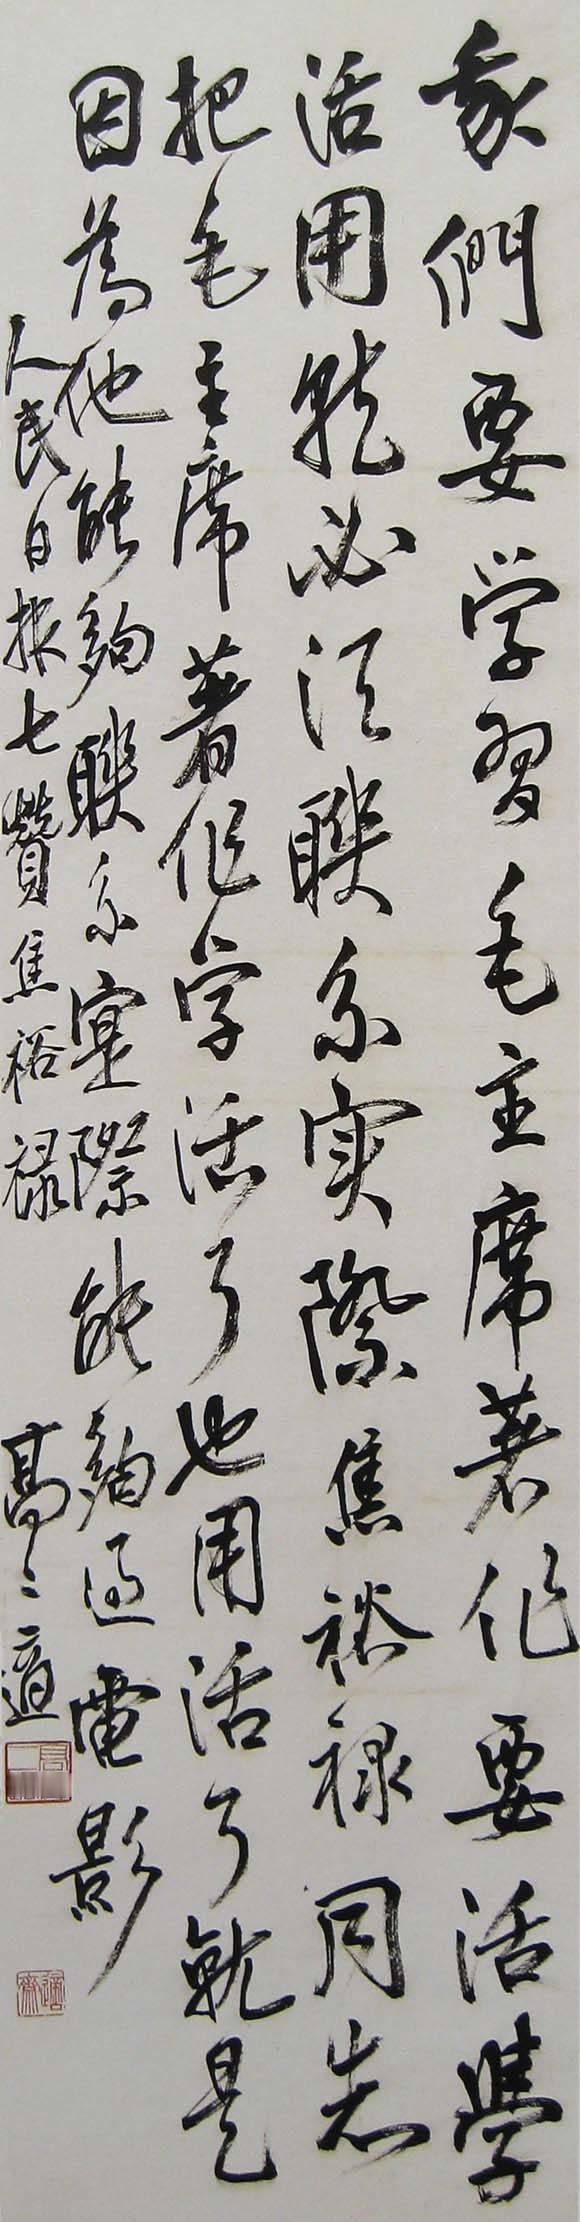 我們要学習毛主席著作要活學
活用就必須联系实際焦裕禄同志
把毛主席著作学活了也用活了就是
因為他能夠联系實際能夠過電影
人民日报七贊焦裕禄
高二適